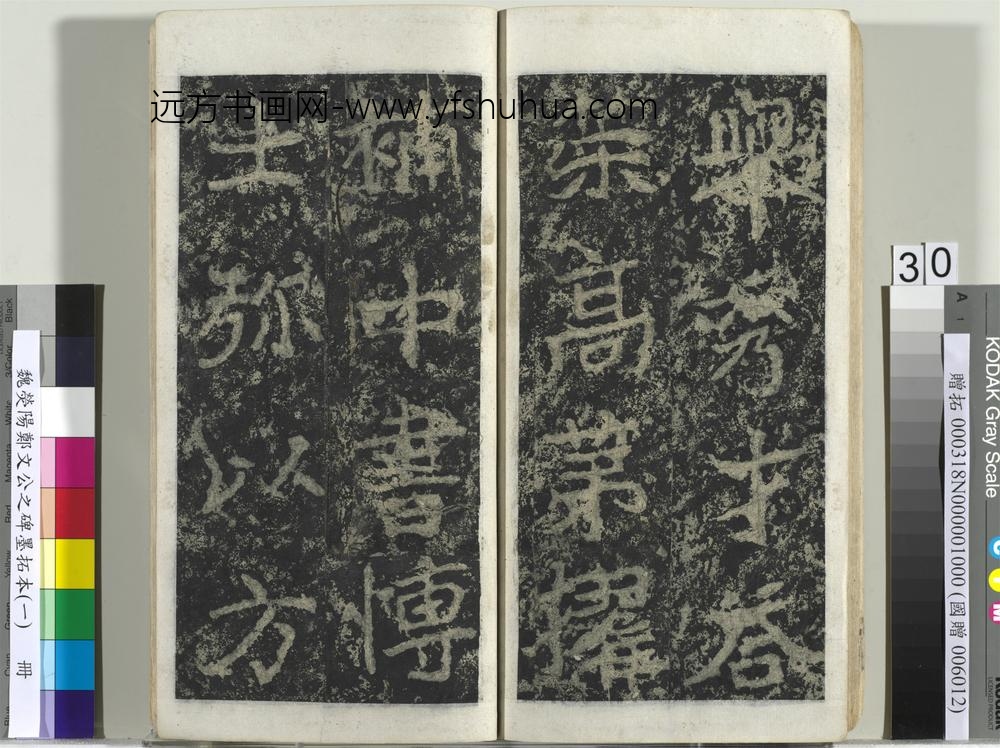 远方书画网-www.yfshuhua.com
舉秀才答
策高第擢
補中書博
士弥以方
30
魏滎陽鄭文公之碑墨拓本(一) 冊
贈拓 000318N000001000 (國贈 006012)
KODAK Gray Scale
A 1
C
Y
M
LICENSED PRODUCT
Black
3/Color
White
Magenta
Red
Yellow
Green
Cyan
Blue